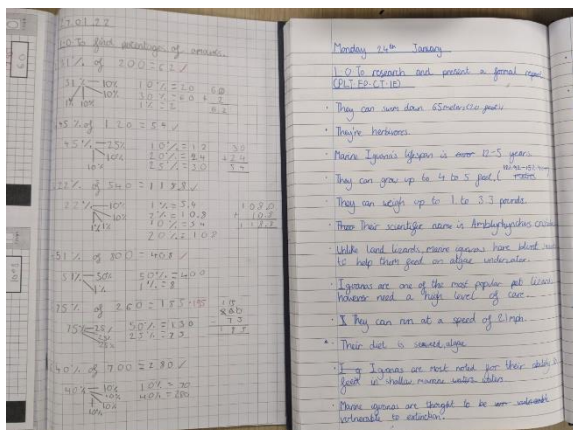 20.1.22
L.O To find percentage of amounts.
31% of 200 = 62
31% 10% 10% = 20
10% 30% = 60
10% 1% 1% = 2
45% of 120 = 54
45% 25%
10% 20% = 24
10%
54
22% of 540 = 118.8
22% 10% 1% = 5.4
10% 2% = 10.8
1% 1% 10% = 54
20% = 108
51% of 800 = 408
51% 50% 50% = 400
1% 1% = 8
75% of 260 =
75% 25% 50% = 130
40% of 700 = 280
40% 10%
10%
10%
10%
Monday 24th January
L.O To research and present a formal
(PLT-EP-CT-IE)
They can swim down 65 meter
They're herbivores
Marine Iguana's lifespan is 12-5 years
They can grow up to 4 to 5 feet,
They can weigh up to 1 to 3.3 pounds
Their scientific name is Amblyrhynchus
Unlike land lizards, marine iguanas have blunt
to help them feed on algae underwater.
Iguanas are one of the most popular pet
however need a high level of care.
They can run at a speed of 21mph.
Their diet is seaweed, algae
Iguanas are most noted for their ability
feed in shallow marine waters
Marine iguanas are thought to be
vulnerable to extinction.